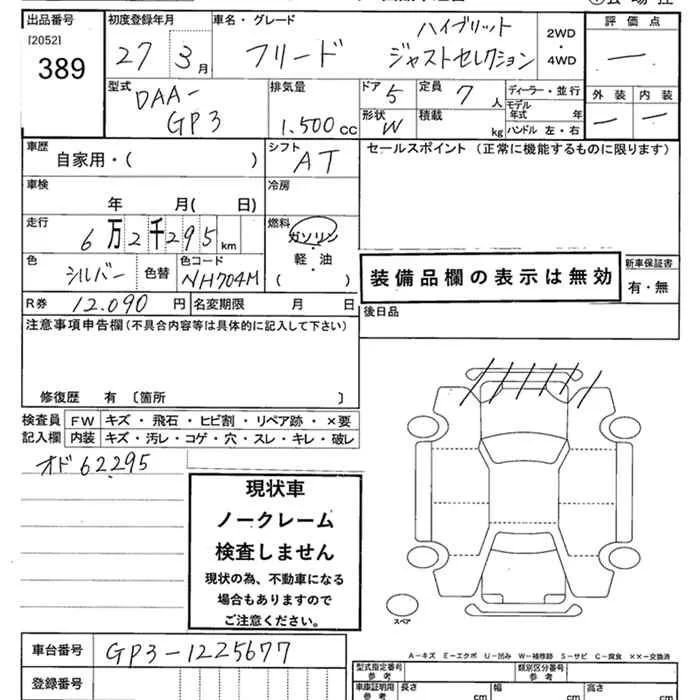 出品番号
[2052]
389
初度登録年月
27 3月
車名・グレード
フリード
ハイブリット
ジャストセレクション
2WD
・
4WD
評価点
—
外装
内装
— —
型式
DAA-
GP3
排気量
1.500cc
ドア 5
形状 W
定員 7人
積載 kg
ディーラー・並行
モデル年式 年
ハンドル 左・右
車歴
自家用・( )
シフト
AT
セールスポイント (正常に機能するものに限ります)
車検
年 月( 日)
冷房
走行
6万2千295km
燃料
ガソリン
軽・油
( )
色
シルバー
色替
色コード
NH704M
装備品欄の表示は無効
新車保証書
有・無
R券 12.090円
名変期限 月 日
後日品
注意事項申告欄(不具合内容等は具体的に記入して下さい)
修復歴 有 〔箇所 〕
検査員
記入欄
FW キズ・飛石・ヒビ割・リペア跡・×要
内装 キズ・汚レ・コゲ・穴・スレ・キレ・破レ
オド62295
現状車
ノークレーム
検査しません
現状の為、不動車になる
場合もありますので
ご注意ください。
スペア
A-キズ E-エクボ U-凹み W-補修跡 S-サビ C-腐食 ××-交換済
車台番号 GP3-1225677
登録番号
型式指定番号
参考
類別区分番号
参考
車車証明用
参考
長さ cm
幅 cm
高さ cm